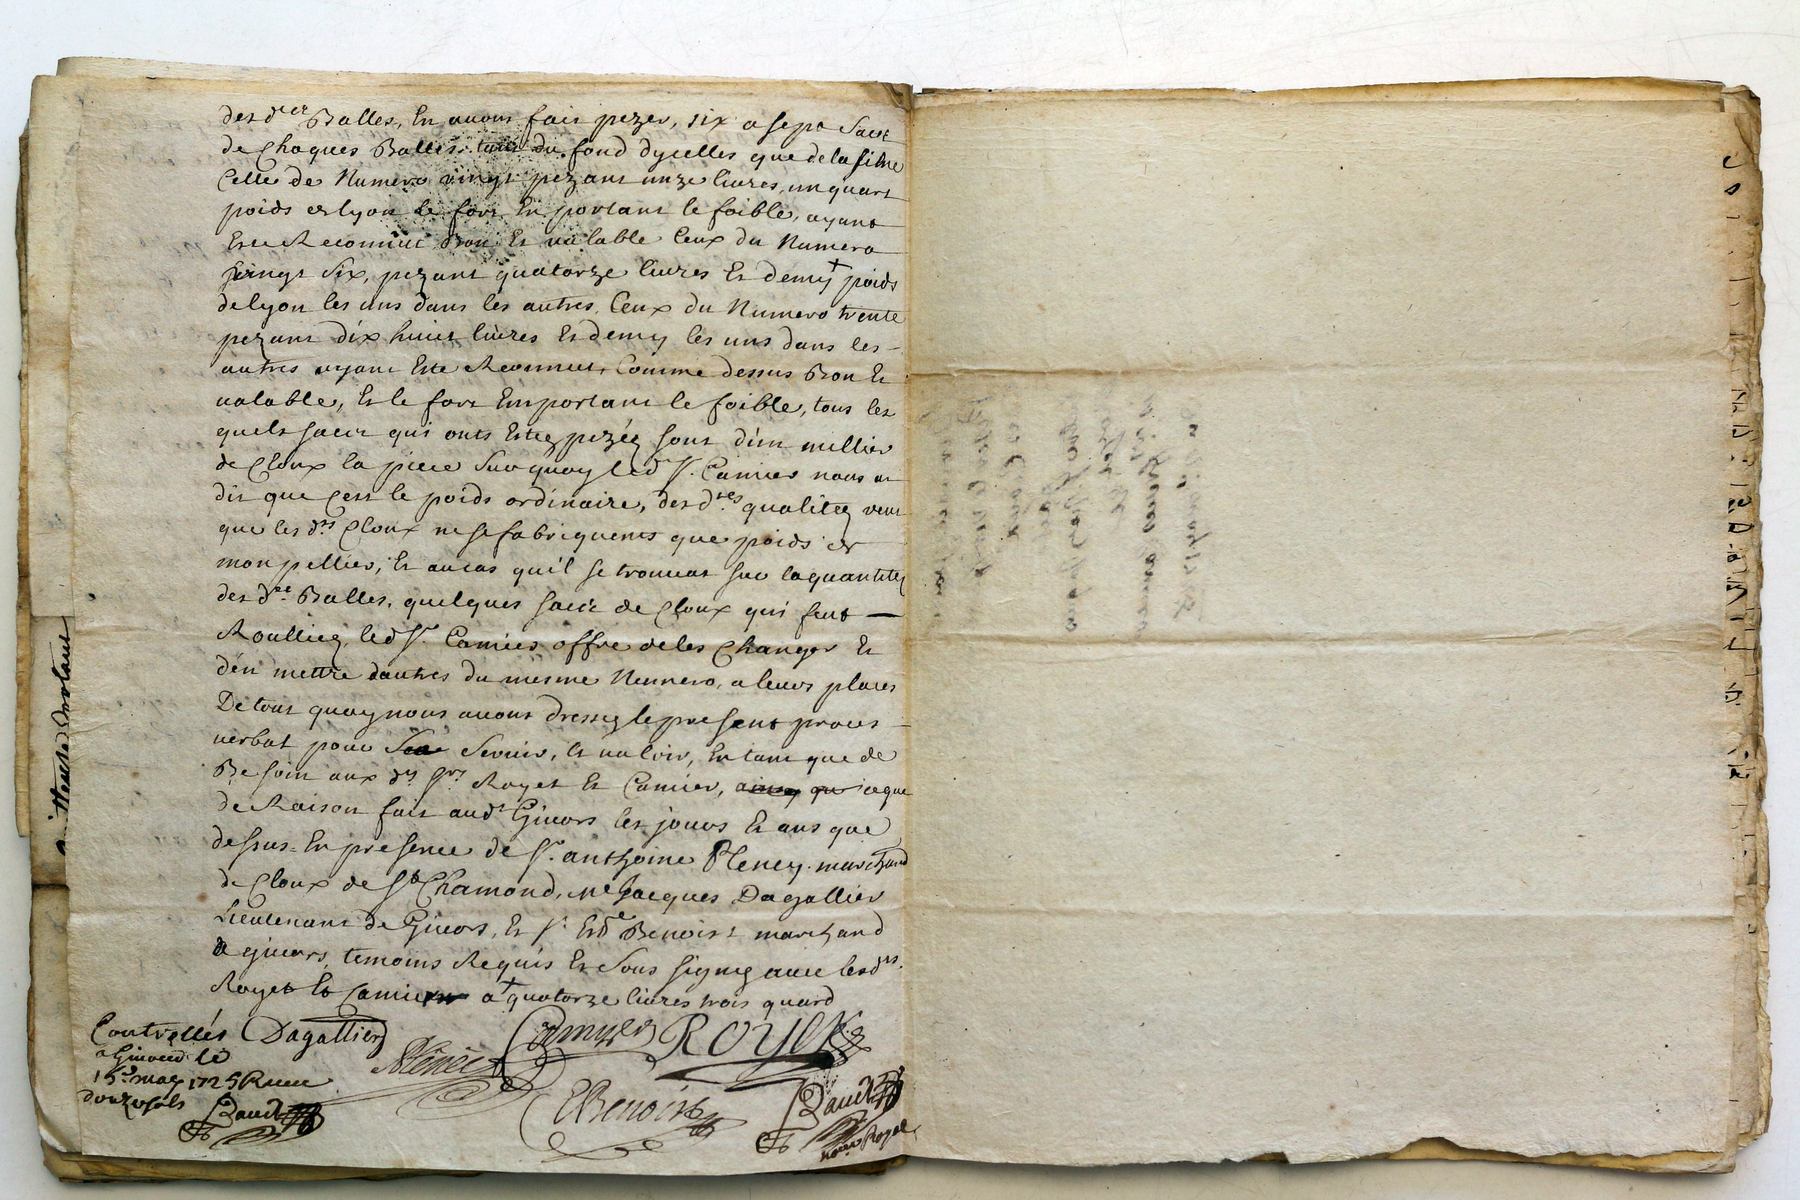 des d.es Balles, Et avons fait pezer, six a sept Sacs
de Chaques Balles tant du fond dycelles que de la sime
Celle de Numero vingt pezant unze livres, un quart
poids de lyon le fort Emportant le foible, ayant
Esté Reconnut Bon Et vallable Ceux du Numero
vingt Six, pezant quatorze livres Et demy + poids
de lyon les uns dans les autres, Ceux du Numero trente
pezant dix huict livres Et demy les uns dans les
autres ayant Esté Reconnut, Comme dessus Bon Et
valable, Et le fort Emportant le foible, tous les
quels sacs qui onts Estez pezéz sont d'un millier
de Cloux la piece Sur quoy led. Sr. Camier nous a
dit que C'est le poids ordinaire, des d.tes qualitez veut
que les d.ts Cloux ne se fabriquents que poids de
monpellier, Et au cas qu'il se trouvat sur la quantitez
des d.es Balles, quelques sacs de Cloux qui fut
Roulliez, led Sr. Camier offre de les Changer Et
d'en mettre dautres du mesme Numero, a leurs places
De tout quoy nous avons dressez le present proces
verbal pour Servir, Et valoir, En tant que de
Besoin aux d.ts Srs Royet Et Camier, ce que
de Raison fait aud.t Givors les jours Et ans que
dessus. En presence de Sr. anthoine Pleney marchand
de Cloux de St Chamond, Me Jacques Dagallier
Lieutenant de Givors, Et Sr. Ede Benoist marchand
de givors, temoins Requis Et Sous signez avec lesd.ts
Royet Et Camier a + quatorze livres trois quard
Controllés Dagallier Camyer ROYET
a Givord le
15e may 1725 Receu Plenéi
douze sols Baudt EBenoist Baudt
nore Royal